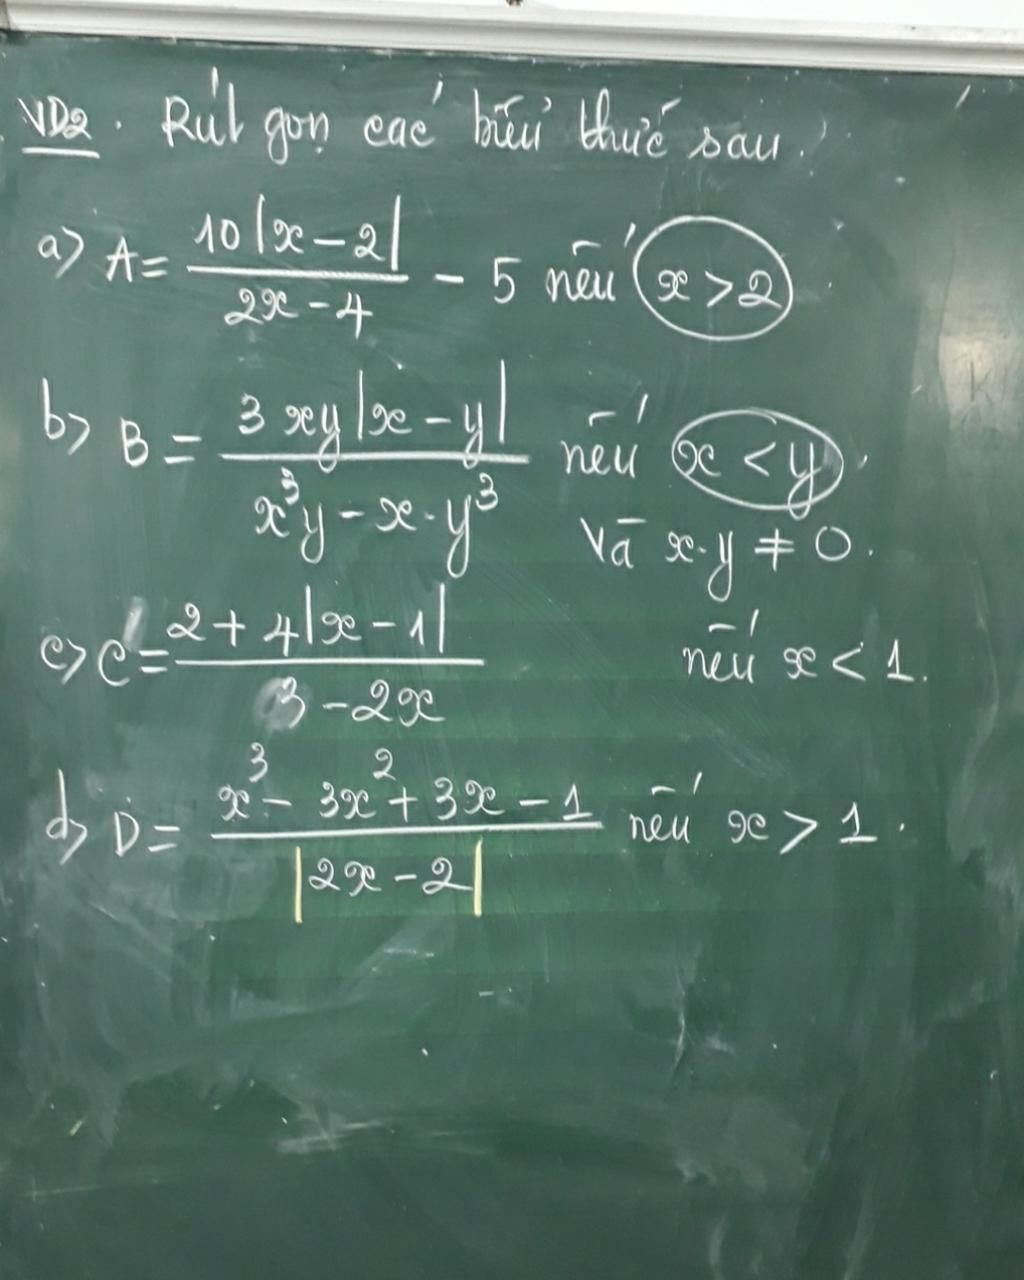 VD2. Rút gọn các biểu thức sau.
a> A = \frac{10|x-2|}{2x-4} - 5 nếu x > 2
b> B = \frac{3xy|x-y|}{x^3y - x \cdot y^3} nếu x < y.
Và x·y ≠ 0.
c> C = \frac{2+4|x-1|}{3-2x} nếu x < 1.
d> D = \frac{x^3 - 3x^2 + 3x - 1}{|2x-2|} nếu x > 1.